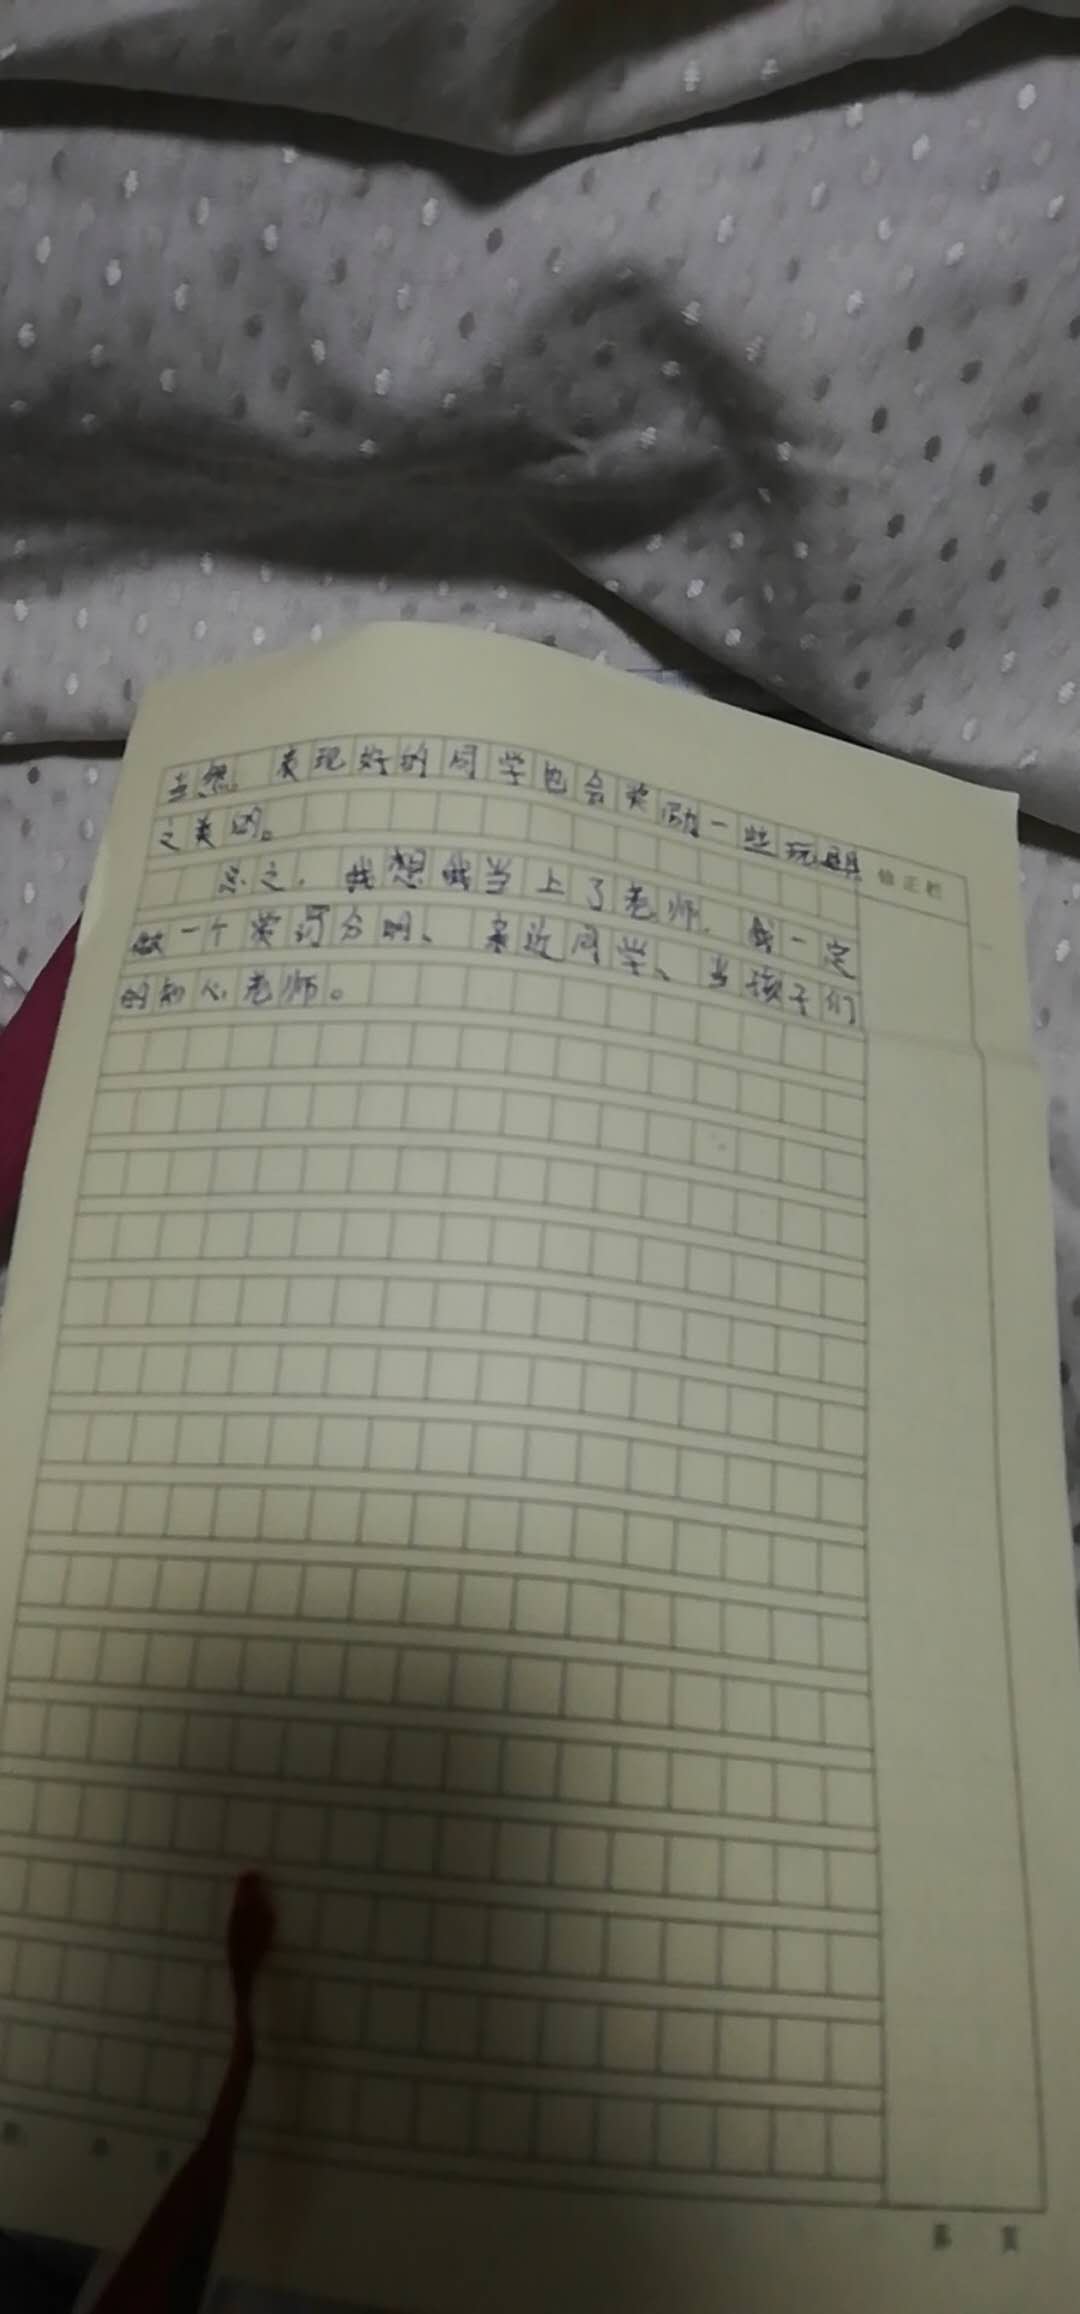 当然，表现好的同学也会奖励一些玩具
之类的。
修正栏
总之，我想我当上了老师，我一定
做一个赏罚分明、亲近同学、当孩子们
的知心老师。
第 页